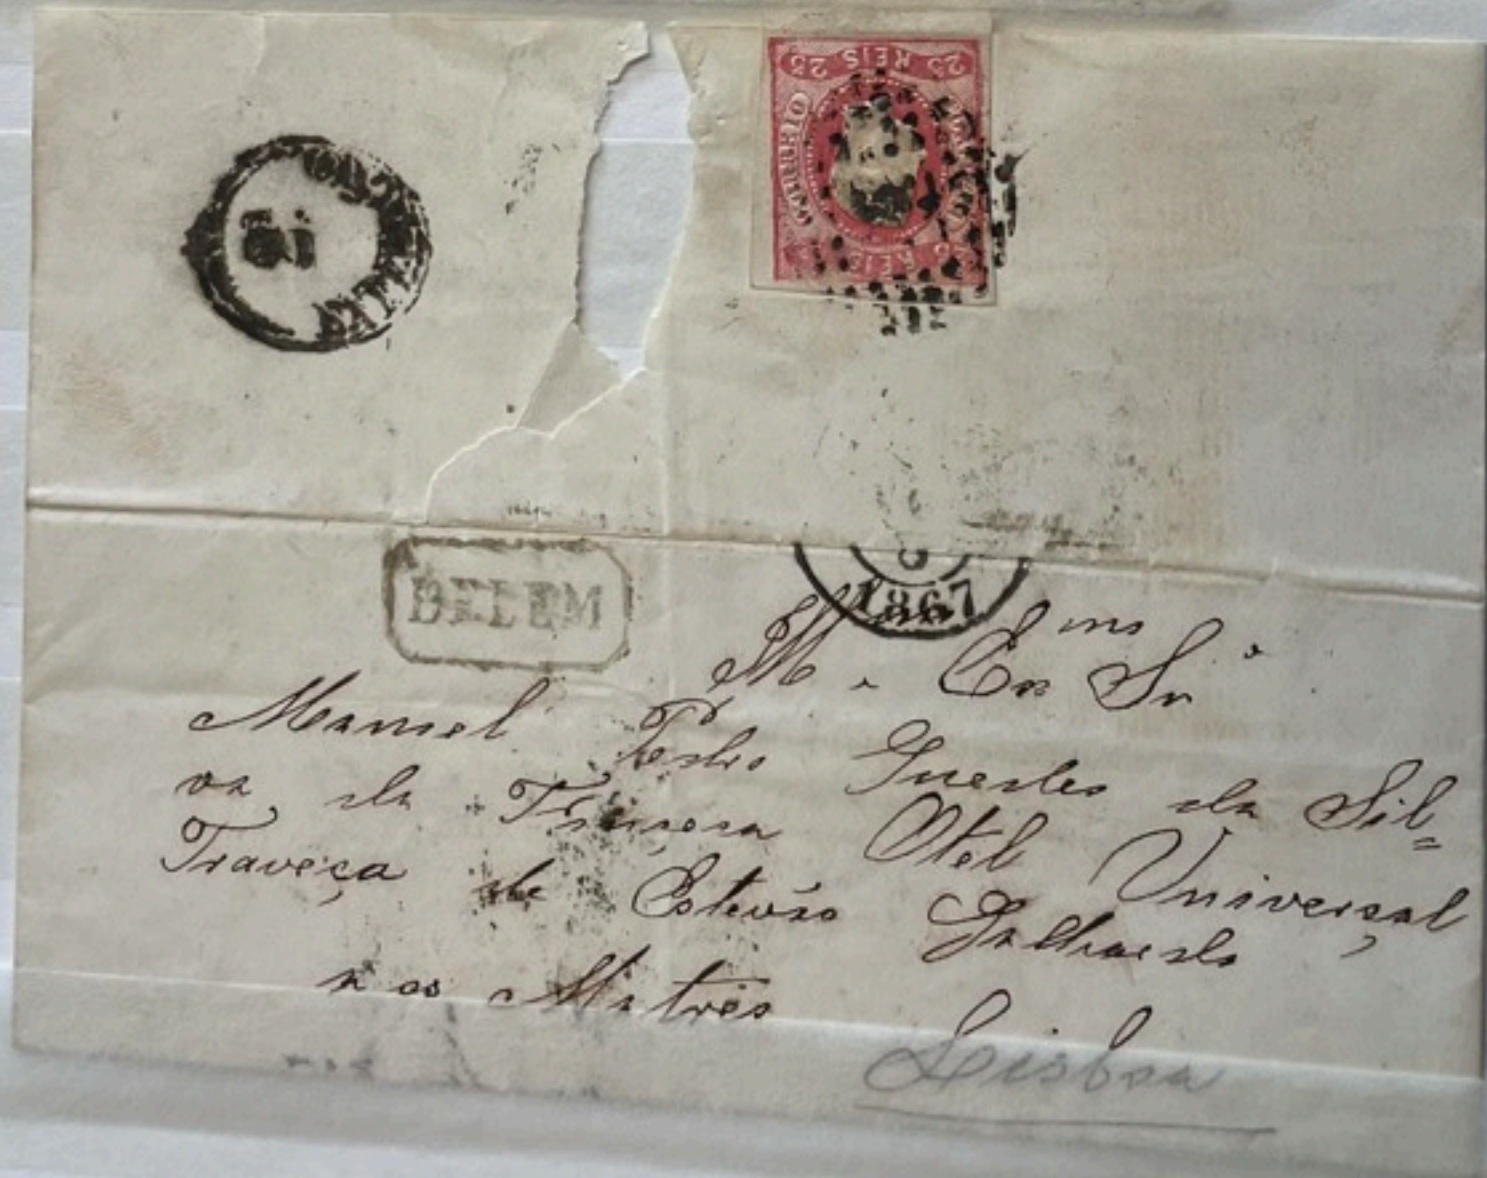 25 REIS 25
CORREIO
REIS
BELEM
1867
Exmo Snr
Manoel Pedro Guedes da Sil=
va da Funçeca Otel Universal
Traveça de Estevão Galhardo
aos Matres
Lisboa